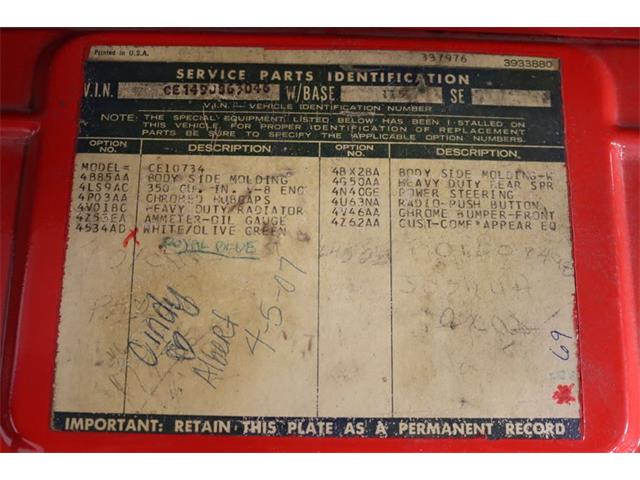 Printed in U.S.A. 337976 3933880
SERVICE PARTS IDENTIFICATION
V.I.N. W/BASE SE
V.I.N. - VEHICLE IDENTIFICATION NUMBER
NOTE: THE SPECIAL EQUIPMENT LISTED BELOW HAS BEEN INSTALLED ON
THIS VEHICLE. FOR PROPER IDENTIFICATION OF REPLACEMENT
PARTS BE SURE TO SPECIFY THE APPLICABLE OPTION NUMBERS.
OPTION NO. DESCRIPTION OPTION NO. DESCRIPTION
MODEL= CE10734 4BX2BA BODY SIDE MOLDING-W
4B85AA BODY SIDE MOLDING 4G50AA HEAVY DUTY REAR SPR
4LS9AC 350 CU. IN. V-8 ENG 4N40GE POWER STEERING
4P03AA CHROMED HUBCAPS 4U63NA RADIO-PUSH BUTTON
4V01BC HEAVY DUTY/RADIATOR 4V46AA CHROME BUMPER-FRONT
4Z53EA AMMETER-OIL GAUGE 4Z62AA CUST-COMF*APPEAR EQ
4534AD WHITE/OLIVE GREEN
Cindy
Albert
4-5-07
69
IMPORTANT: RETAIN THIS PLATE AS A PERMANENT RECORD